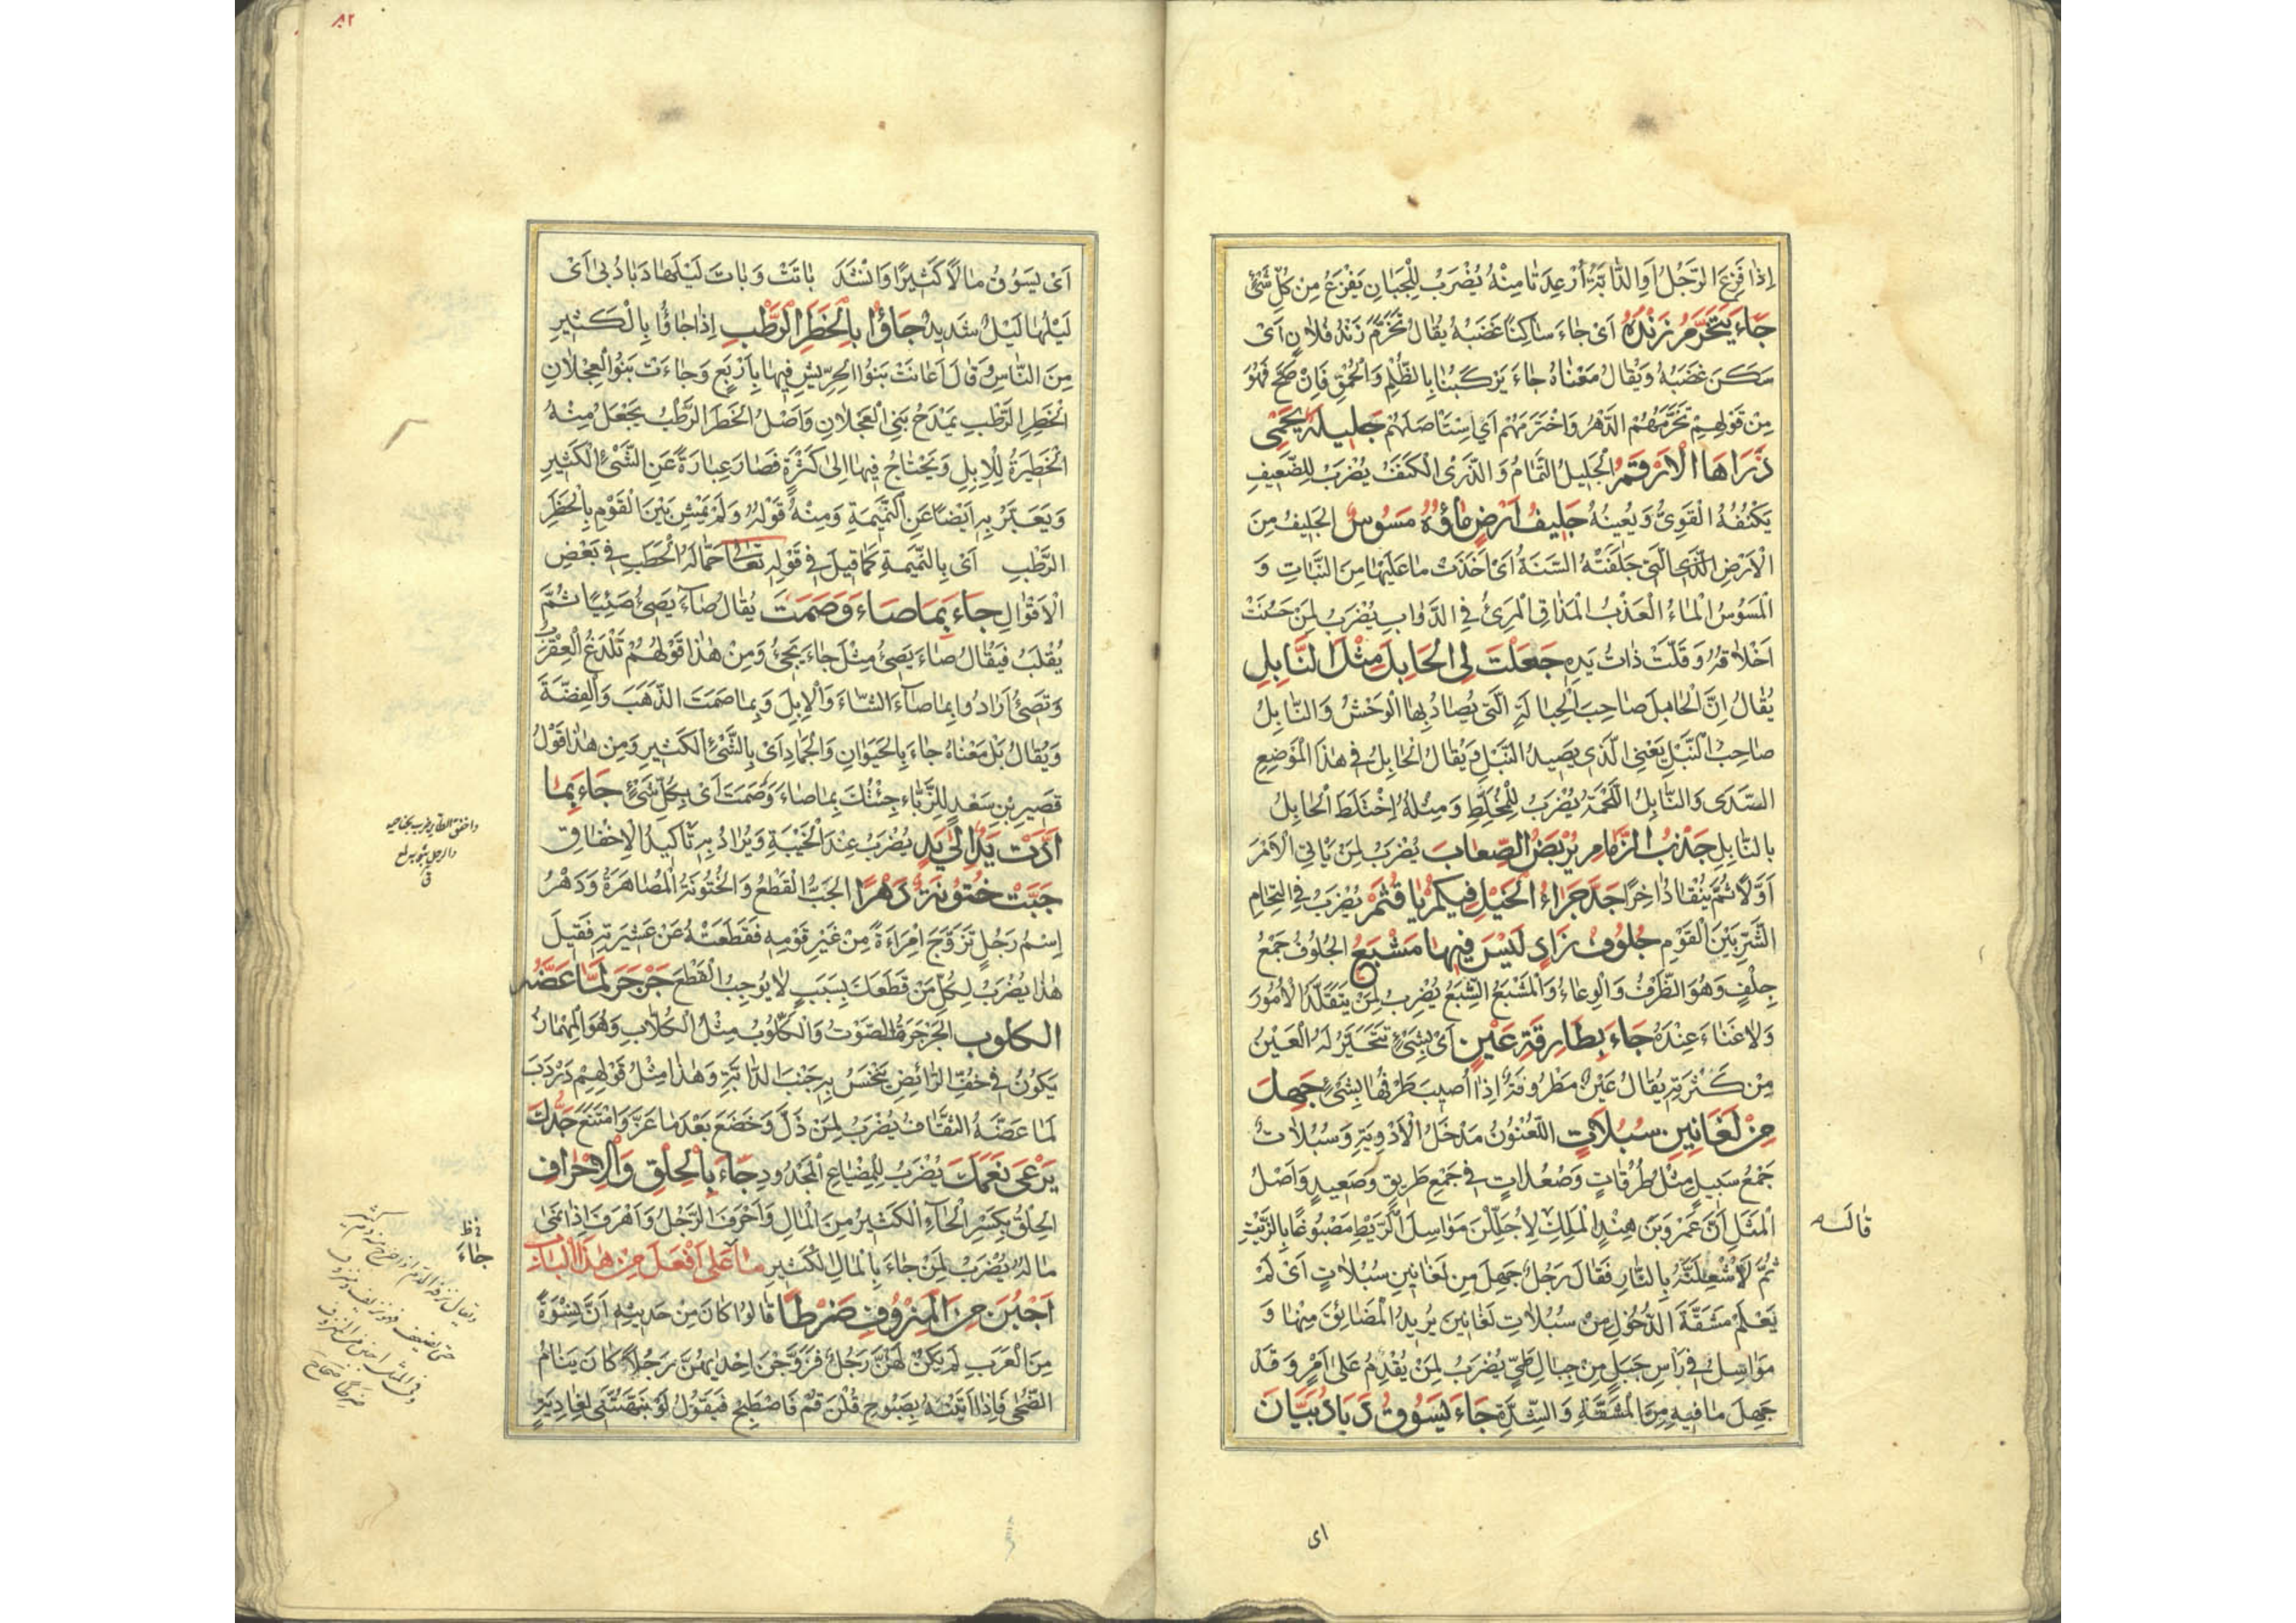 اِذَا فَزِعَ الرَّجُلُ اَوِ الدَّابَّةُ اُرْعِدَتَا مِنْهُ يُضْرَبُ لِلْجَبَانِ يَفْزَعُ مِنْ كُلِّ شَىْءٍ
جَاءَ يَتَخَرَّمُ زَنْدُهُ اَىْ جَاءَ سَاكِنًا غَضَبُهُ يُقَالُ تَخَرَّمَ زَنْدُ فُلَانٍ اَىْ
سَكَنَ غَضَبُهُ وَيُقَالُ مَعْنَاهُ جَاءَ يَرْكَبُنَا بِالظُّلْمِ وَالْحُمْقِ فَاِنْ صَحَّ فَهُوَ
مِنْ قَوْلِهِمْ تَخَرَّمَهُمُ الدَّهْرُ وَاخْتَرَمَهُمْ اَىِ اسْتَاْصَلَهُمْ جَلِيلَةٌ يَحْمِى
ذَرَاهَا الْاَرْقَمُ الْجَلِيلُ الثُّمَامُ وَ الذَّرَى الْكَنَفُ يُضْرَبُ لِلضَّعِيفِ
يَكْنُفُهُ الْقَوِىُّ وَيُعِينُهُ جَلِيفُ اَرْضٍ مَاؤُهُ مَسُوسٌ الْجَلِيفُ مِنَ
الْاَرْضِ الَّتِى جَلَفَتْهُ السَّنَةُ اَىْ اَخَذَتْ مَا عَلَيْهَا مِنَ النَّبَاتِ وَ
الْمَسُوسُ الْمَاءُ الْعَذْبُ الْمَذَاقِ الْمَرِىُّ فِى الدَّوَابِ يُضْرَبُ لِمَنْ حَسُنَتْ
اَخْلَاقُهُ وَقَلَّتْ ذَاتُ يَدِهِ جَعَلْتَ لِىَ الْحَابِلَ مِثْلَ النَّابِلِ
يُقَالُ اِنَّ الْحَابِلَ صَاحِبُ الْحِبَالَةِ الَّتِى يُصَادُ بِهَا الْوَحْشُ وَالنَّابِلُ
صَاحِبُ النَّبْلِ يَعْنِى الَّذِى يَصِيدُ النَّبْلِ وَيُقَالُ الْحَابِلُ فِى هٰذَا الْمَوْضِعِ
السَّدَى وَالنَّابِلُ اللُّحْمَةُ يُضْرَبُ لِلْمُخَلِّطِ وَمِثْلُهُ اِخْتَلَطَ الْحَابِلُ
بِالنَّابِلِ جَذْبُ الزِّمَامِ يُرِيضُ الصِّعَابَ يُضْرَبُ لِمَنْ يَاْبَى الْاَمْرَ
اَوَّلًا ثُمَّ يَنْقَادُ اٰخِرًا جَدَّ جِرَاءُ الْخَيْلِ فِيكُمْ يَا قُثَمُ يُضْرَبُ فِى الْتِحَامِ
الشَّرِّ بَيْنَ الْقَوْمِ جُلُوفُ زَادٍ لَيْسَ فِيهَا مَشْبَعٌ الْجُلُوفُ جَمْعُ
جِلْفٍ وَهُوَ الظَّرْفُ وَالْوِعَاءُ وَالْمَشْبَعُ الشِّبَعُ يُضْرَبُ لِمَنْ يَتَقَلَّدُ الْاُمُورَ
وَلَا غَنَاءَ عِنْدَهُ جَاءَ بِطَارِفَةِ عَيْنٍ اَىْ بِشَىْءٍ تَتَحَيَّرُ لَهُ الْعَيْنُ
مِنْ كَثْرَتِهِ يُقَالُ عَيْنٌ مَطْرُوفَةٌ اِذَا اُصِيبَ طَرْفُهَا بِشَىْءٍ جَهِلَ
مِنْ لَغَانِينَ سُبُلَاتٍ اللُّغْنُونُ مَدْخَلُ الْاَوْدِيَةِ وَسُبُلَاتٌ
جَمْعُ سَبِيلٍ مِثْلُ طُرُقَاتٍ وَصُعُدَاتٍ فِى جَمْعِ طَرِيقٍ وَصَعِيدٍ وَاَصْلُ
الْمَثَلِ اَنَّ عَمْرَوبْنَ هِنْدٍ الْمَلِكَ لَاُجَلِّلَنَّ مَوَاسِلَ الرَّيْطِ مَصْبُوغًا بِالزَّيْتِ
قَالَ
ثُمَّ لَاُشْعِلَنَّهُ بِالنَّارِ فَقَالَ رَجُلٌ جَهِلَ مِنْ لَغَانِينَ سُبُلَاتٍ اَىْ لَمْ
يَعْلَمْ مَشَقَّةَ الدُّخُولِ مِنْ سُبُلَاتِ لَغَانِينَ يُرِيدُ الْمَضَائِقَ مِنْهَا وَ
مَوَاسِلُ فِى رَأْسِ جَبَلٍ مِنْ جِبَالِ طَىٍّ يُضْرَبُ لِمَنْ يُقْدِمُ عَلَى اَمْرٍ وَ قَدْ
جَهِلَ مَا فِيهِ مِنَ الْمَشَقَّةِ وَالشِّدَّةِ جَاءَ يَسُوقُ دَبَا دُبَيَّانَ
اى
٨٢
اَىْ يَسُوقُ مَالًا كَثِيرًا وَانْشَدَ بَاتَتْ وَ بَاتَ لَيْلُهَا دَبَا دُبَىْ اَىْ
لَيْلُهَا لَيْلٌ شَدِيدٌ جَاؤُا بِالْحَظِرِ الرَّطْبِ اِذَا جَاؤُا بِالْكَثِيرِ
مِنَ النَّاسِ وَقَالَ اَعَانَتْ بَنُوا الْحِرِّيشِ فِيهَا بِاَرْبَعٍ وَجَاءَتْ بَنُو الْعِجْلَانِ
الْحَظِرِ الرَّطْبِ يَمْدَحُ بَنِى الْعَجْلَانِ وَاَصْلُ الْحَظِرِ الرَّطْبُ يُجْعَلُ مِنْهُ
الْحَظِيرَةُ لِلْاِبِلِ وَيَحْتَاجُ فِيهَا اِلَى كَثْرَةٍ فَصَارَ عِبَارَةً عَنِ الشَّىْءِ الْكَثِيرِ
وَيُعَبَّرُ بِهِ اَيْضًا عَنِ النَّمِيمَةِ وَمِنْهُ قَوْلُهُ وَلَمْ يَمْشِ بَيْنَ الْقَوْمِ بِالْحَظِرِ
الرَّطْبِ اَىْ بِالنَّمِيمَةِ كَمَا قِيلَ فِى قَوْلِهِ تَعَالَى حَمَّالَةَ الْحَطَبِ فِى بَعْضِ
الْاَقْوَالِ جَاءَ بِمَا صَاءَ وَصَمَتَ يُقَالُ صَاءَ يَصِىءُ صَئِيًا ثُمَّ
يُقْلَبُ فَيُقَالُ صَاءَ يَصِىءُ مِثْلُ جَاءَ يَجِىءُ وَمِنْ هٰذَا قَوْلُهُمْ تَلْدَغُ الْعَقْرَبُ
وَتَصِىءُ اَرَادُوا بِمَا صَاءَ الشَّاءَ وَالْاِبِلَ وَبِمَا صَمَتَ الذَّهَبَ وَالْفِضَّةَ
وَيُقَالُ بَلْ مَعْنَاهُ جَاءَ بِالْحَيَوَانِ وَالْجَمَادِ اَىْ بِالشَّىْءِ الْكَثِيرِ وَمِنْ هٰذَا قَوْلُ
قَصِيرِ بْنِ سَعْدٍ لِلزَّبَّاءِ جِئْتُكَ بِمَا صَاءَ وَصَمَتَ اَىْ بِكُلِّ شَىْءٍ جَاءَ بِمَا
اَدَّتْ يَدٌ اِلَى يَدٍ يُضْرَبُ عِنْدَ الْخَيْبَةِ وَيُرَادُ بِهِ تَاْكِيدُ الْاِخْفَاقِ
جَبَّتْ خُتُونَةٌ دَهْرًا الْجَبُّ الْقَطْعُ وَالْخُتُونَةُ الْمُصَاهَرَةُ وَدَهْرُ
اِسْمُ رَجُلٍ تَزَوَّجَ اِمْرَاَةً مِنْ غَيْرِ قَوْمِهِ فَقَطَعَتْهُ عَنْ عَشِيرَتِهِ فَقِيلَ
هٰذَا يُضْرَبُ لِكُلِّ مَنْ قَطَعَكَ بِسَبَبٍ لَا يُوجِبُ الْقَطْعَ جَرْجَرَ لَمَّا عَضَّهُ
الكلوب الْجَرْجَرَةُ الصَّوْتُ وَالْكَلُّوبُ مِثْلُ الْكُلَّابِ وَهُوَ الْمِهْمَازُ
يَكُونُ فِى خُفِّ الرَّائِضِ يَنْخَسُ بِهِ جَنْبَ الدَّابَّةِ وَهٰذَا مِثْلُ قَوْلِهِمْ دَرْدَبَ
لَمَّا عَضَّهُ الثِّقَافُ يُضْرَبُ لِمَنْ ذَلَّ وَخَضَعَ بَعْدَ مَا عَزَّ وَامْتَنَعَ جَدُّكَ
يَرْعَى نَعَمَكَ يُضْرَبُ لِلْمِضْيَاعِ الْمَجْدُودِ جَاءَ بِالْحِلْقِ وَالْاِحْرَافِ
الْحِلْقُ بِكَسْرِ الْحَاءِ الْكَثِيرُ مِنَ الْمَالِ وَاَحْرَفَ الرَّجُلُ وَاَهْرَفَ اِذَا نَمَى
مَالُهُ يُضْرَبُ لِمَنْ جَاءَ بِالْمَالِ الْكَثِيرِ مَا عَلَى اَفْعَلَ مِنْ هٰذَا الْبَابِ
جَاءَ
اَجْبُنَ مِنَ الْمَنْزُوفِ ضَرْطًا قَالُوا كَانَ مِنْ حَدِيثِهِ اَنَّ نِسْوَةً
مِنَ الْعَرَبِ لَمْ يَكُنْ لَهُنَّ رَجُلٌ فَزَوَّجْنَ اِحْدَيهُنَّ رَجُلًا كَانَ يَنَامُ
الضُّحَى فَاِذَا اَتَيْنَهُ بِصَبُوحٍ قُلْنَ قُمْ فَاصْطَبِحْ فَيَقُولُ لَوْ نَبَّهْتُنَّنِى لِعَادِيَةٍ